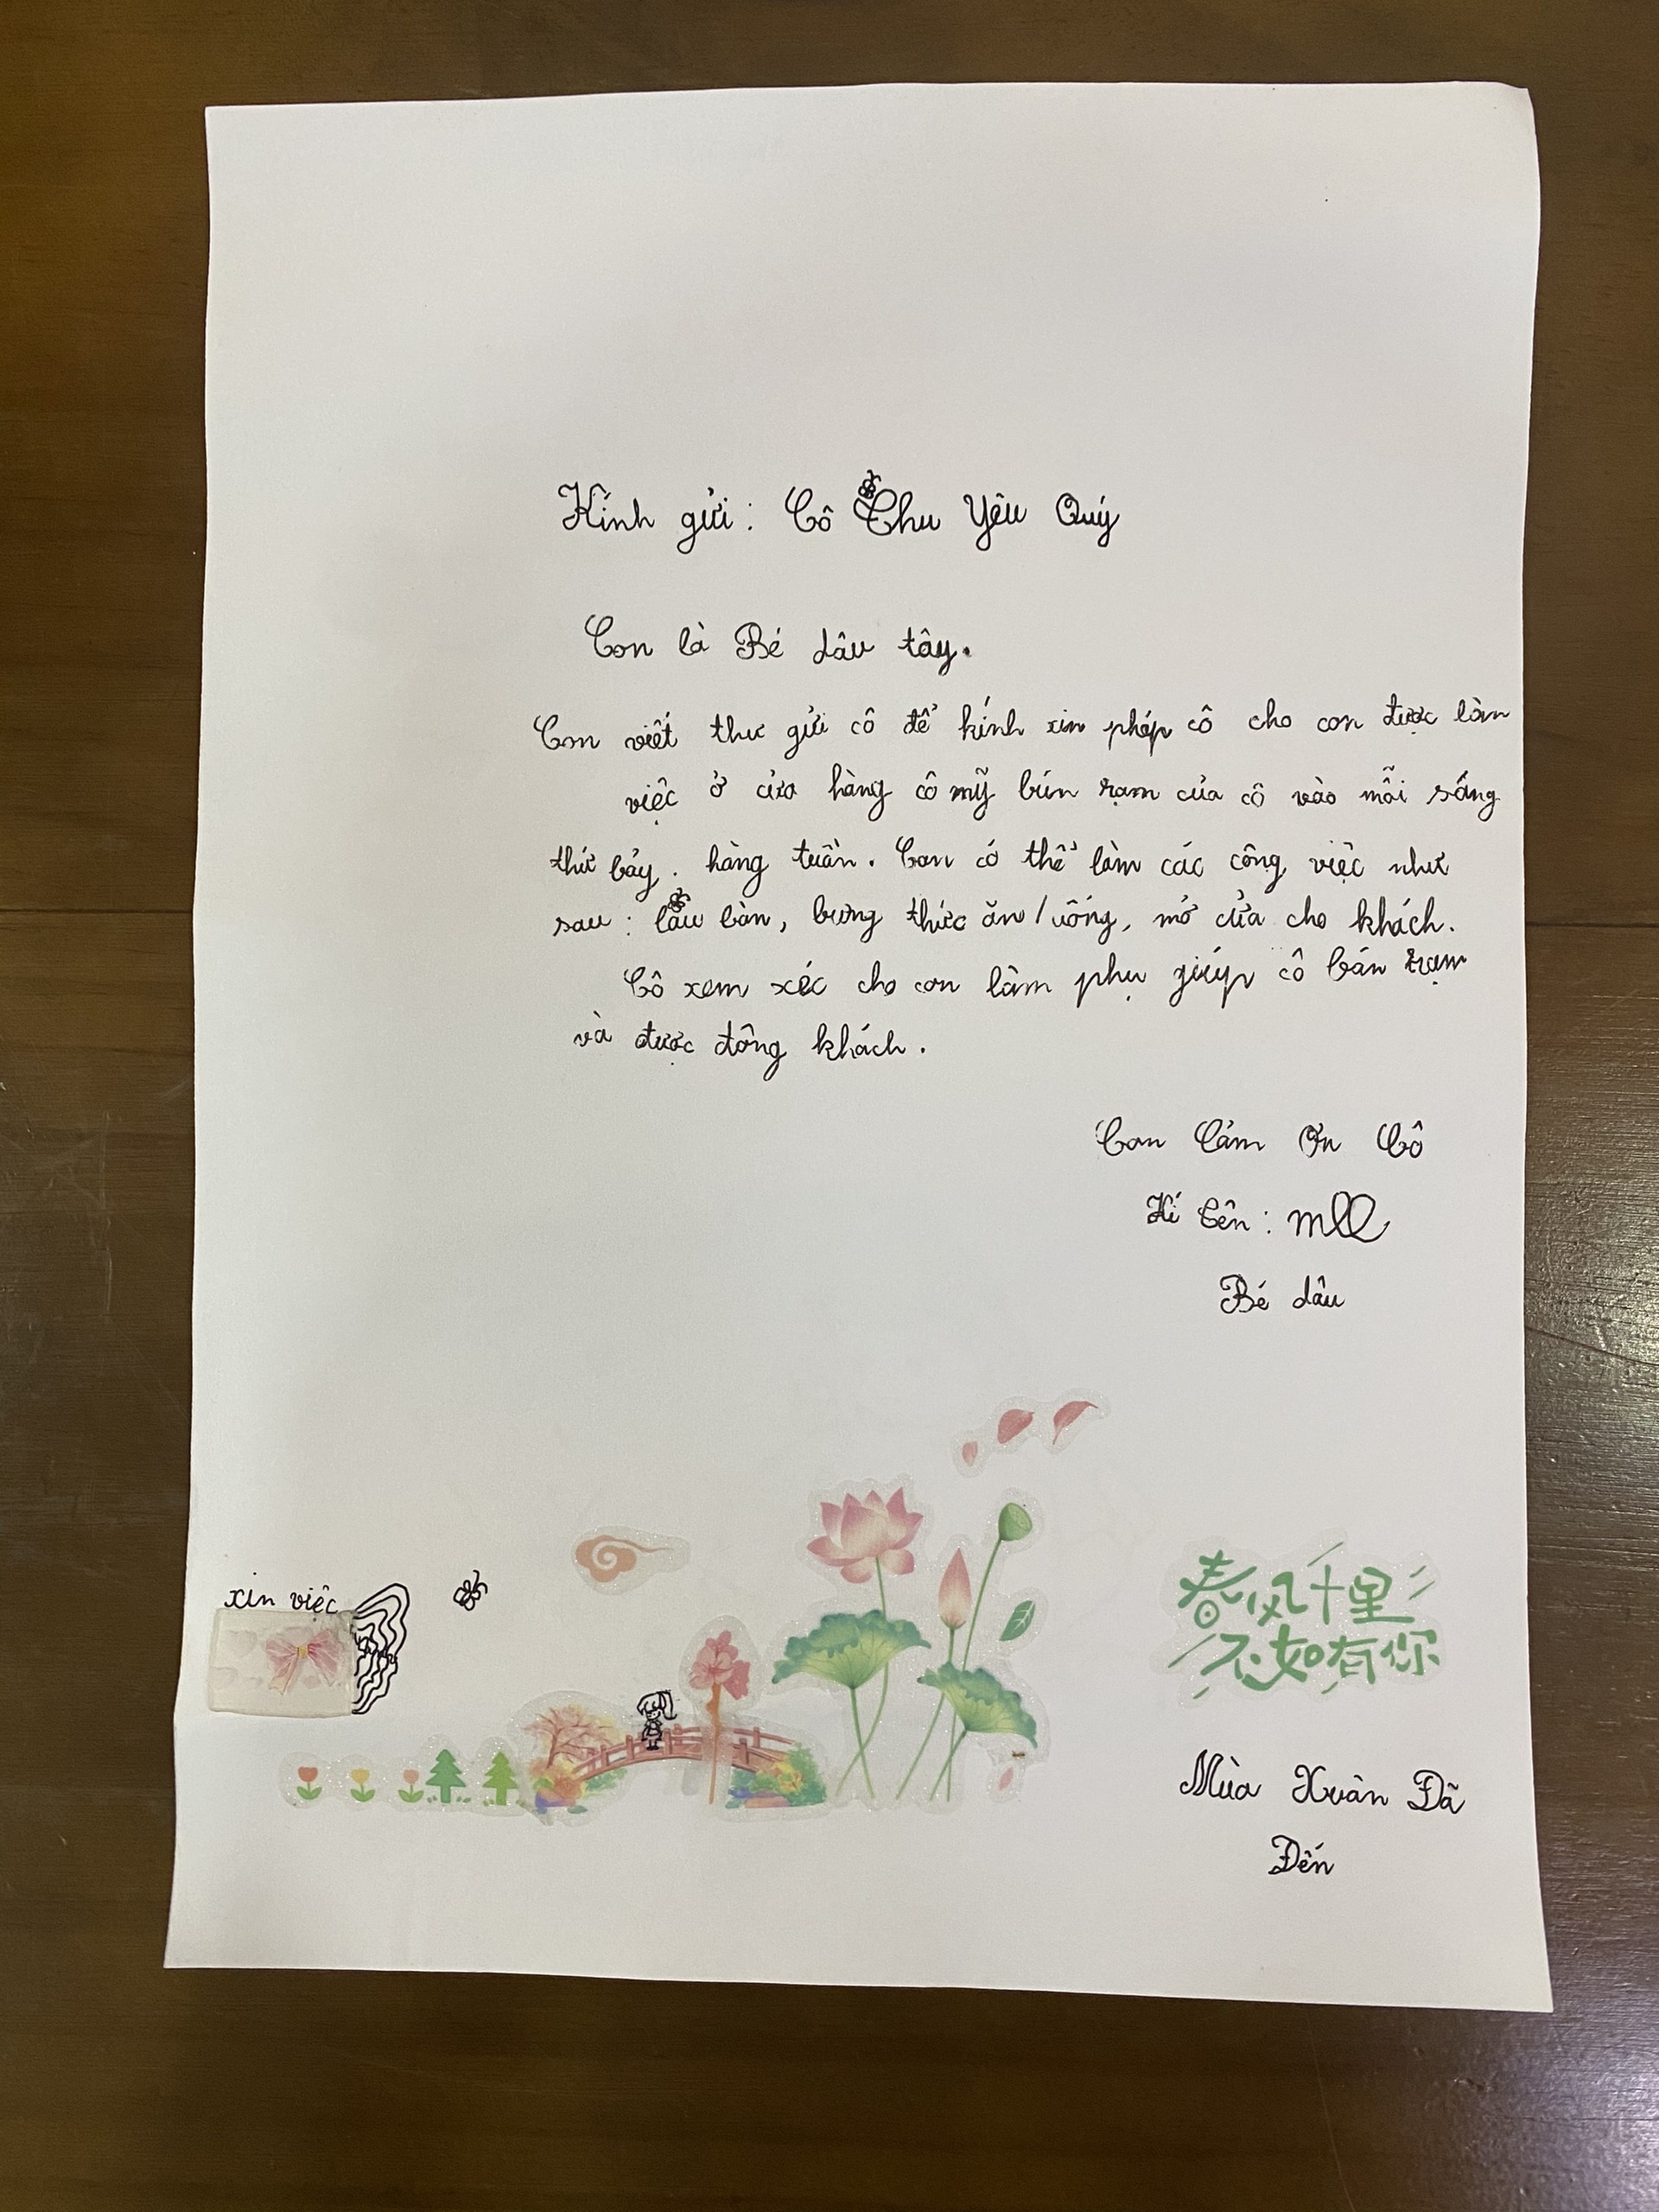 Kính gửi: Cô Thu Yêu Quý
Con là Bé dâu tây.
Con viết thư gửi cô để kính xin phép cô cho con được làm
việc ở cửa hàng cô mỹ bún rạm của cô vào mỗi sáng
thứ bảy. hàng tuần. Con có thể làm các công việc như
sau: lâu bàn, bưng thức ăn/uống, mở cửa cho khách.
Cô xem xéc cho con làm phụ giúp cô bán rạm
và được đông khách.
Con Cảm Ơn Cô
Kí Tên:
Bé dâu
xin việc
春风十里
不如有你
Mùa Xuân Đã
Đến